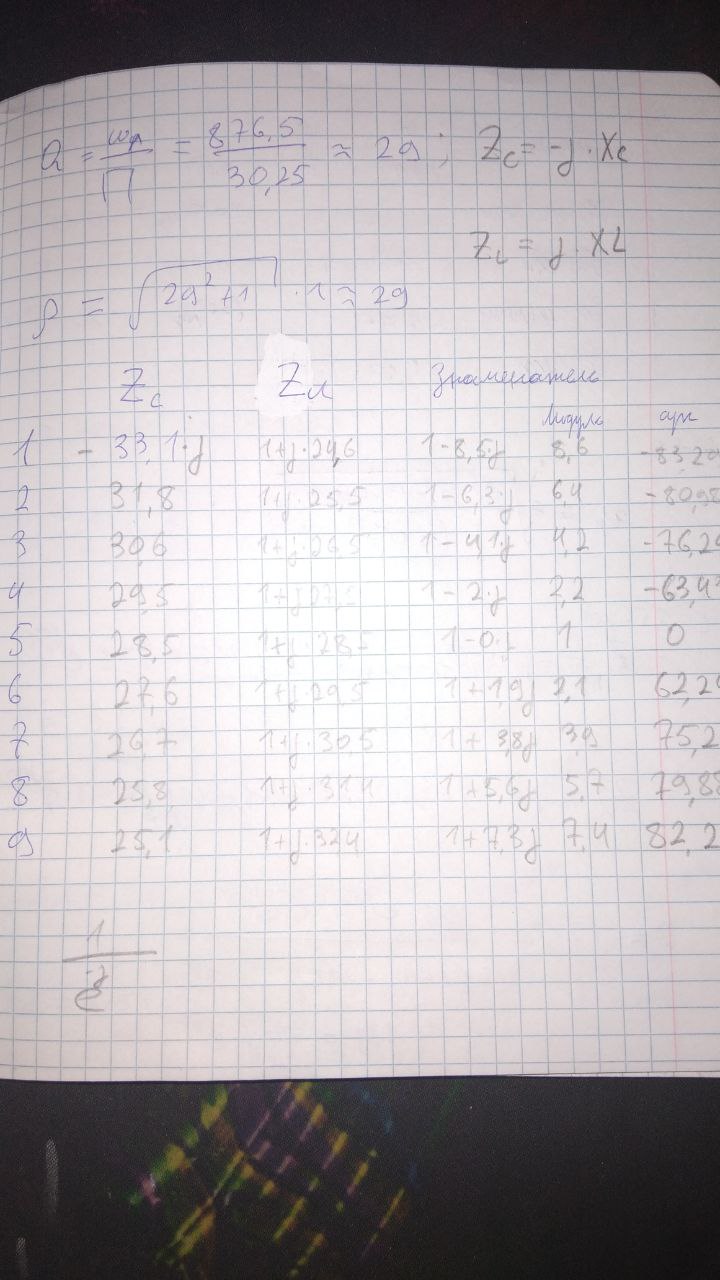 Q = ωр/П = 876,5/30,25 ≈ 29; Zc = -j · Xc
ZL = j · XL
ρ = √(29²+1) · 1 ≈ 29
Zc Zл Знаменатель
Модуль арг
1 - 33,1·j 1+j·24,6 1-8,5j 8,6 -83,29
2 31,8 1+j·25,5 1-6,3·j 6,4 -80,98
3 30,6 1+j·26,5 1-4,1·j 4,2 -76,29
4 29,5 1-2·j 2,2 -63,4
5 28,5 1+j·28,5 1-0·j 1 0
6 27,6 1+j·29,5 1+1,9j 2,1 62,24
7 26,7 1+j·30,5 1+3,8j 3,9 75,2
8 25,8 1+j·31,4 1+5,6j 5,7 79,88
9 25,1 1+j·32,4 1+7,3j 7,4 82,2
1